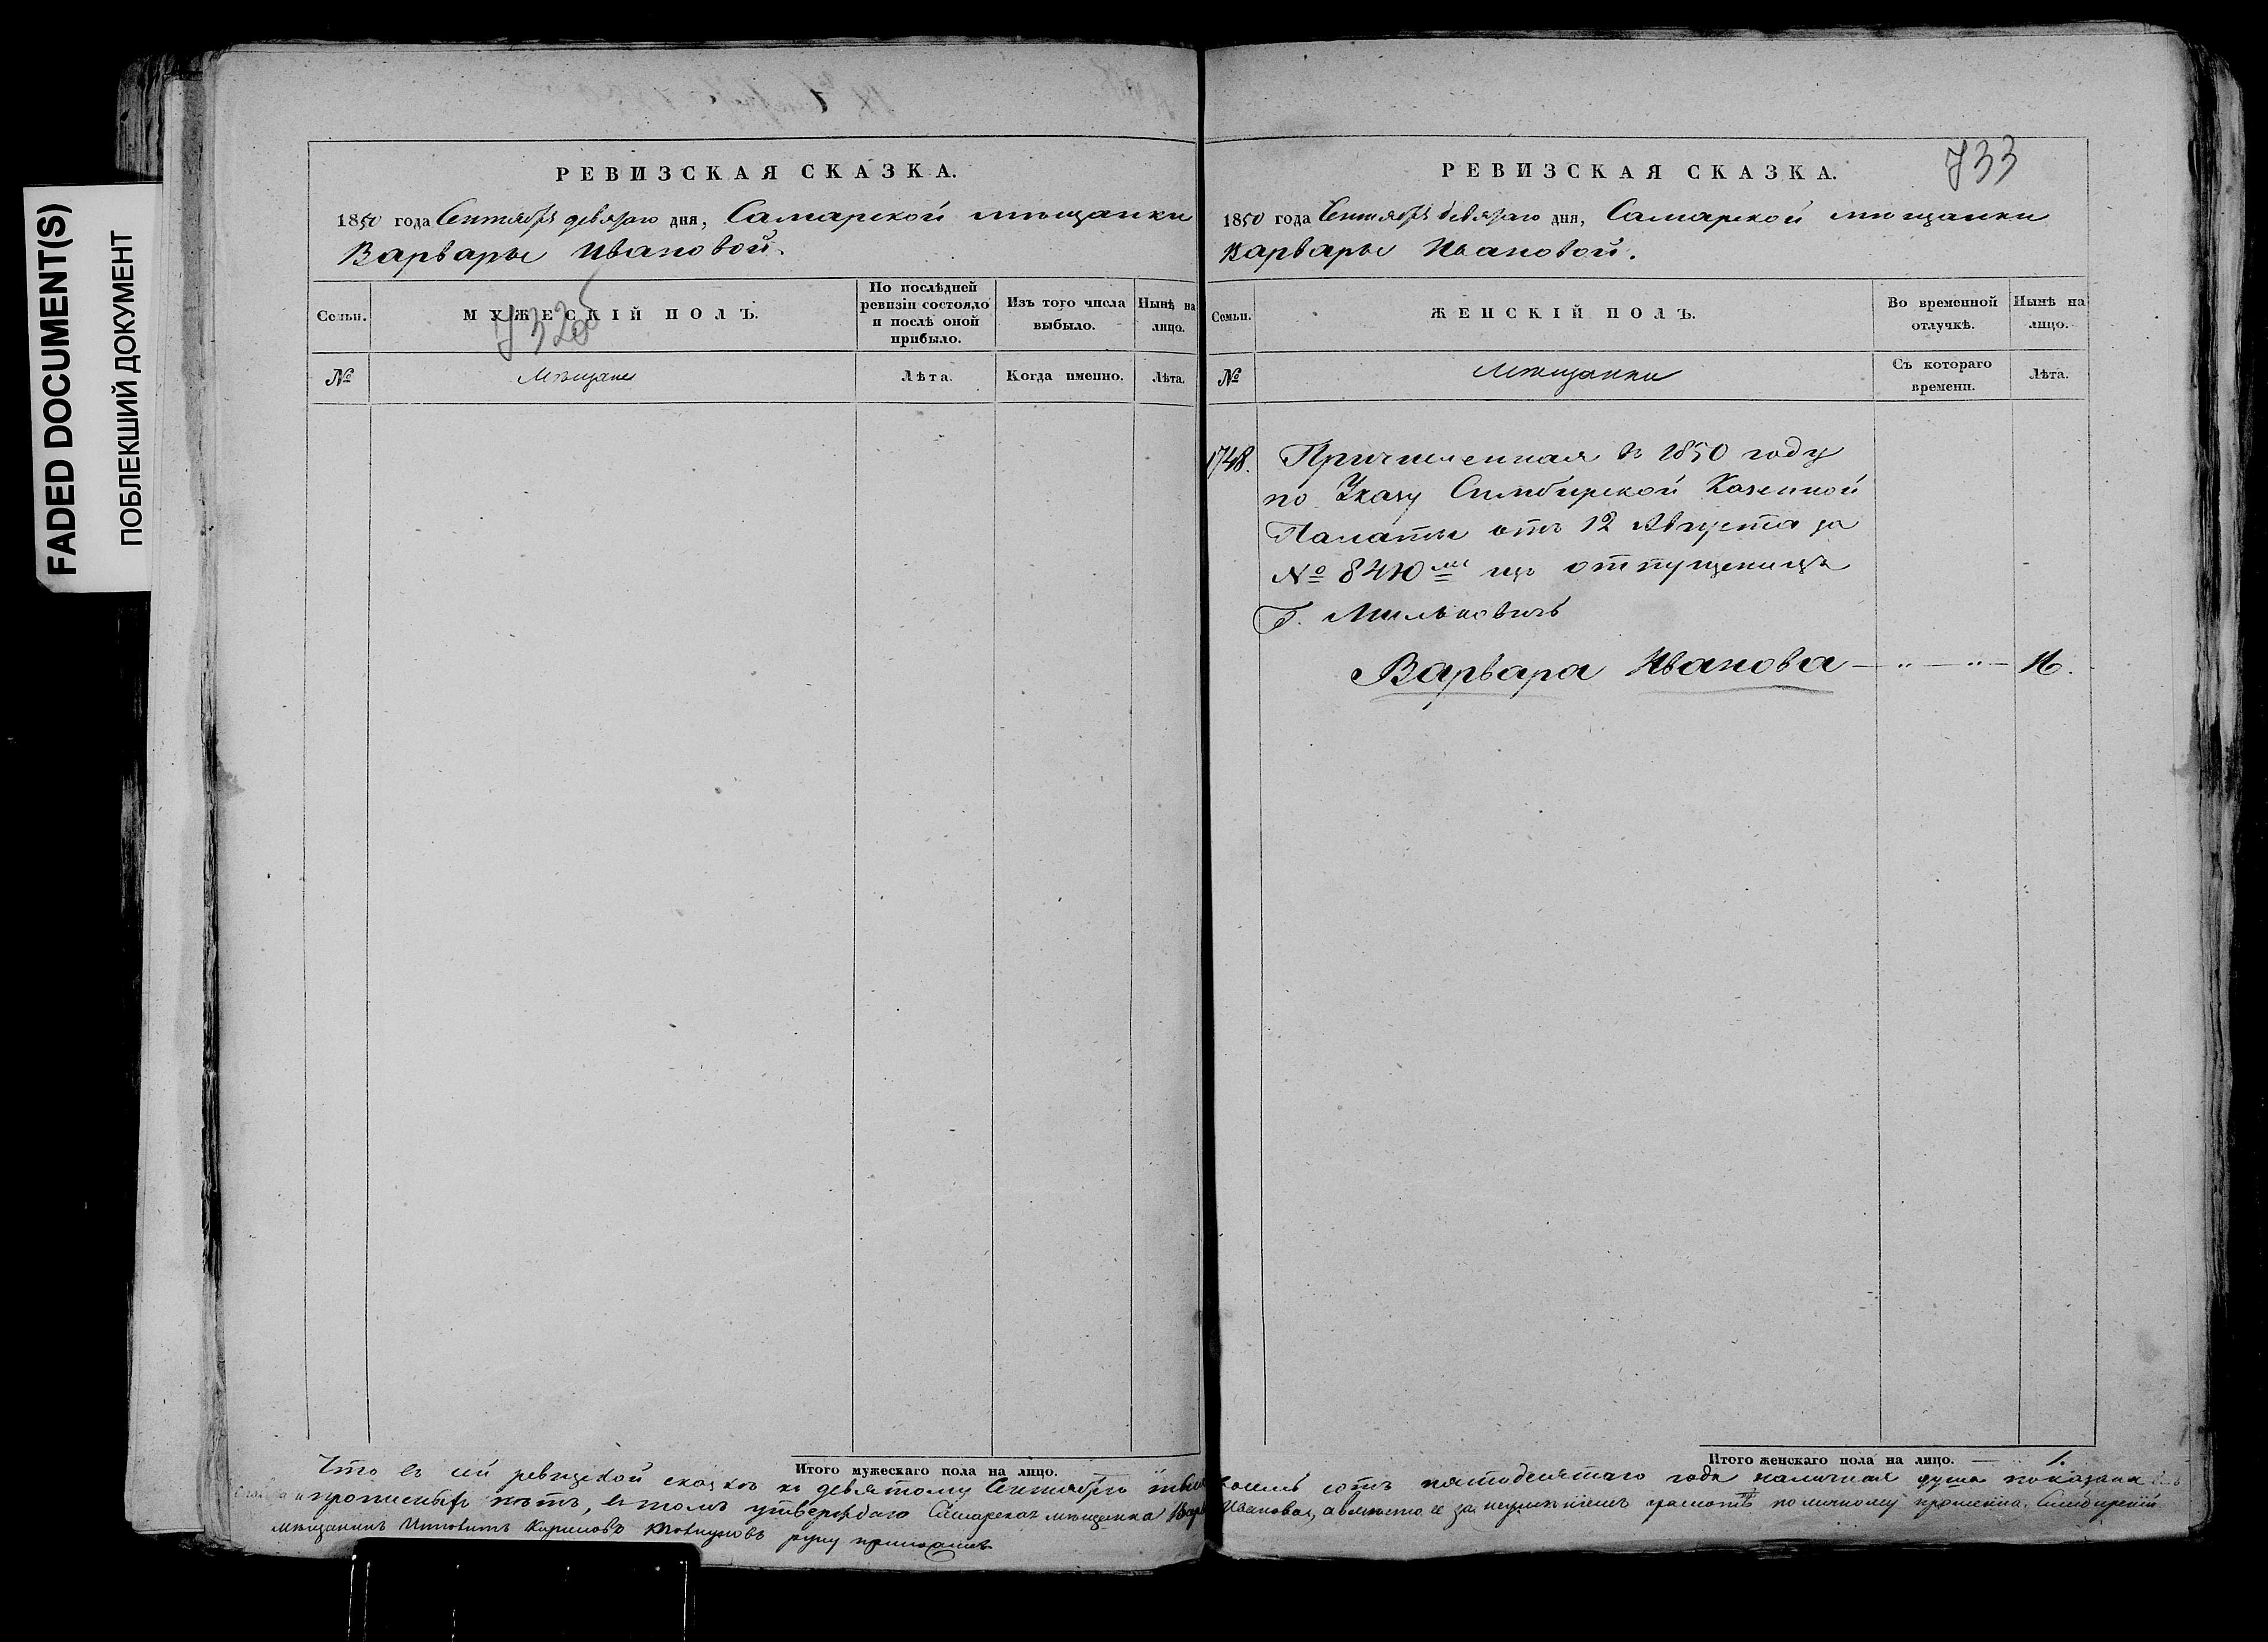 FADED DOCUMENT(S)
ПОБЛЕКШИЙ ДОКУМЕНТ
РЕВИЗСКАЯ СКАЗКА.
1850 года Сентября девятаго дня, Самарской мѣщанки
Варвары Ивановой.
Семьи.
МУЖЕСКІЙ ПОЛЪ.
По послѣдней
ревизіи состояло
и послѣ оной
прибыло.
Изъ того числа
выбыло.
Нынѣ на
лицо.
№
Мѣщане
Лѣта.
Когда именно.
Лѣта.
Итого мужескаго пола на лицо.
733
РЕВИЗСКАЯ СКАЗКА.
1850 года Сентября девятаго дня, Самарской мѣщанки
Варвары Ивановой.
Семьи.
ЖЕНСКІЙ ПОЛЪ.
Во временной
отлучкѣ.
Нынѣ на
лицо.
№
Мѣщанки
Съ котораго
времени.
Лѣта.
1748. Причисленная въ 1850 году
по Указу Симбирской Казенной
Палаты отъ 12 Августа за
№ 8410 изъ отпущеницъ
Г. Мильковичъ
Варвара Иванова — " — " —
Итого женскаго пола на лицо. — 1.
Что въ сей ревизской сказкѣ къ девятому Сентября тысяча восемь сотъ пятодесятаго года наличная душа показана
прописныхъ нѣтъ, въ томъ утверждаю Самарская мѣщанка Варвара Иванова, а вмѣсто ее за неумѣніемъ грамотѣ по личному прошенію, Симбирскій
мѣщанинъ Кириловъ руку приложилъ